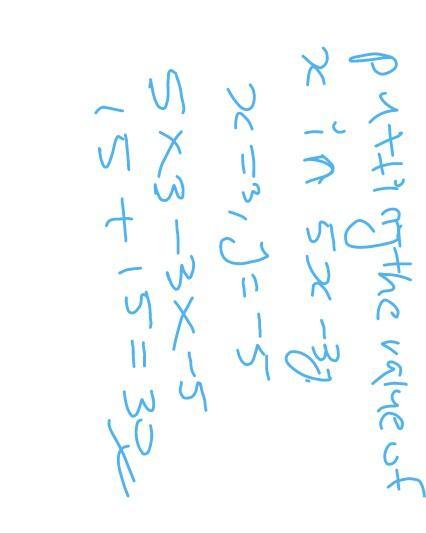 putting the value of
x in 5x - 3y
x = 3, y = -5
5 x 3 - 3 x -5
15 + 15 = 30